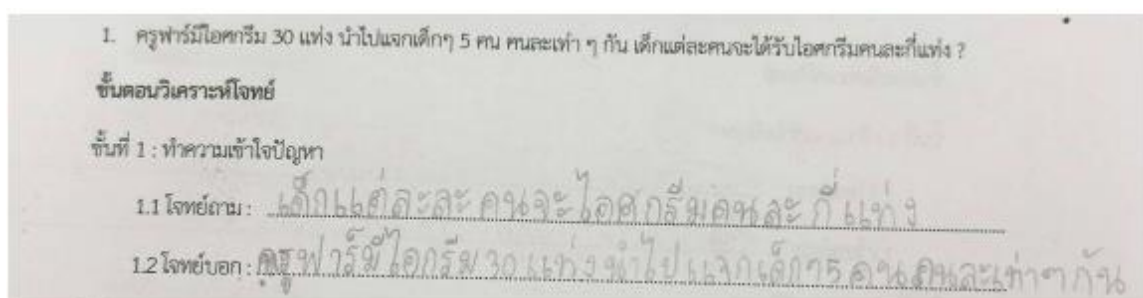 1. ครูฟาร์มีไอศกรีม 30 แท่ง นำไปแจกเด็กๆ 5 คน คนละเท่า ๆ กัน เด็กแต่ละคนจะได้รับไอศกรีมคนละกี่แท่ง ?
ขั้นตอนวิเคราะห์โจทย์
ขั้นที่ 1 : ทำความเข้าใจปัญหา
1.1 โจทย์ถาม : เด็กแต่ละละคนจะไอศกรีมคนละกี่แท่ง
1.2 โจทย์บอก : ครูฟาร์มีไอกรีม 30 แท่งนำไปแจกเด็กๆ 5 คนคนละเท่าๆกัน